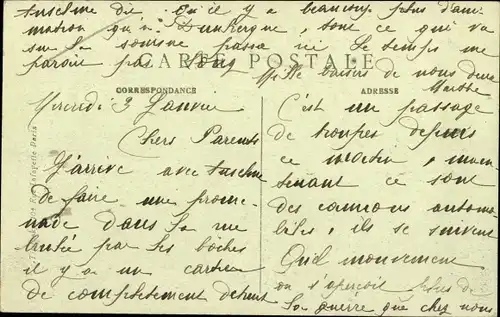 Anselme dit qu'il y a beaucoup plus d'ani-
mation qu'à Dunkerque, tout ce qui va
sur la Somme passe ici Le temps me
paraît pas long
Mille baisers de nous deux
Marthe
CARTE POSTALE
CORRESPONDANCE
Mercredi 3 Janvier
Chers Parents
J'arrive avec Anselme
de faire une prome-
nade dans la rue
brulée par les boches
il y a un cartier
de complètement détruit
ADRESSE
C'est un passage
de troupes depuis
ce matin, main-
tenant ce sont
des canons automo-
biles, ils se suivent
Quel mouvement
on s'aperçoit plus de
la guerre que chez nous
Lafayette Paris